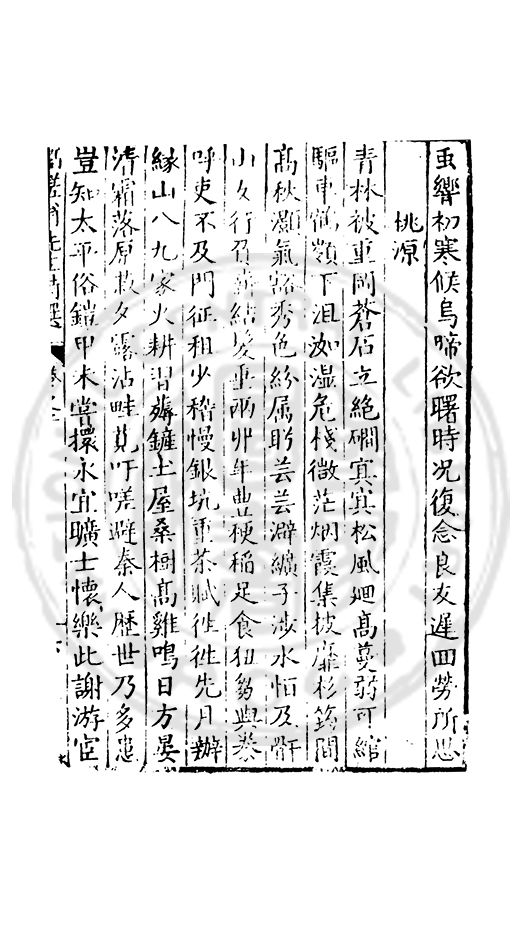 虫響初寒候烏啼欲曙時况復念良友遲回勞所思
桃源
青林被重岡蒼石立絶磵冥冥松風廻高蔓弱可綰
驅車鵝嶺下沮洳濕危棧微茫烟霞集披靡杉筠間
高秋灝氣豁秀色紛属盻芸芸澼纊子涉水怕及骭
山女行負薪結髮垂兩丱年豊粳稲足食犯芻與豢
呼吏不及門征租少稽慢銀坑重茶賦徃徃先月辦
緣山八九家火耕習薅鏟土屋桑樹高雞鳴日方晏
清霜落原菽夕露沾畦莧吁嗟避秦人歷世乃多患
豈知太平俗鎧甲未嘗擐永宜曠士懷樂此謝游宦
先生詩選 卷之